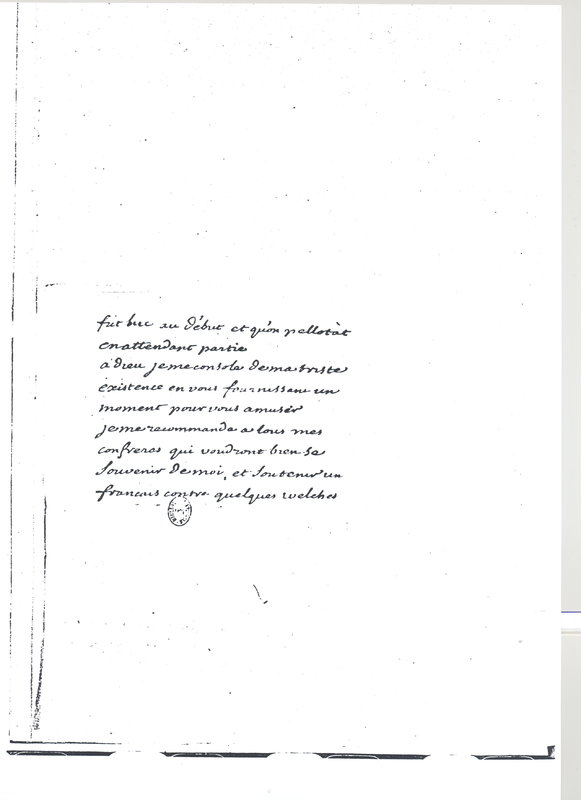 fut lue au début et qu'on pellotàt
en attendant partie
a dieu je me console de ma triste
existence en vous fournissant un
moment pour vous amuser
je me recommande a tous mes
confreres qui voudront bien se
souvenir de moi, et soutenir un
francais contre quelques welches